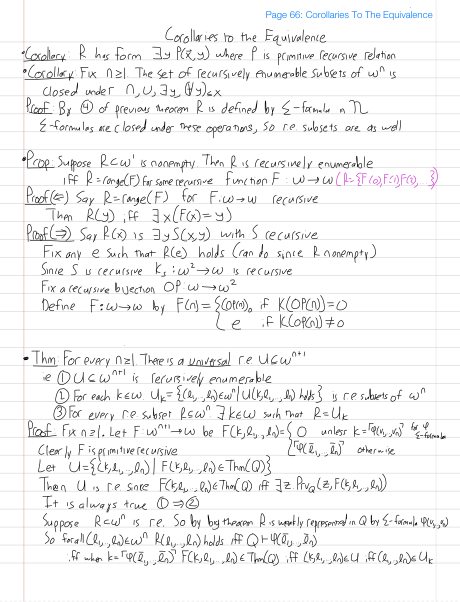 Page 66: Corollaries To The Equivalence
Corollaries to the Equivalence
• Corollary R has form ∃y P(x⃗,y) where P is primitive recursive relation
• Corollary Fix n≥1. The set of recursively enumerable subsets of ωⁿ is
closed under ∩,∪,∃y,(∀y)≤x
Proof: By ④ of previous theorem R is defined by Σ-formula in 𝔑
Σ-formulas are closed under these operations, so r.e. subsets are as well
• Prop: Suppose R⊂ω¹ is nonempty. Then R is recursively enumerable
iff R=range(F) for some recursive function F:ω→ω (R={F(0),F(1),F(2),...})
Proof(⇐) Say R=range(F) for F:ω→ω recursive
Then R(y) iff ∃x(F(x)=y)
Proof(⇒) Say R(x) is ∃y S(x,y) with S recursive
Fix any e such that R(e) holds (can do since R nonempty)
Since S is recursive Kₛ:ω²→ω is recursive
Fix a recursive bijection OP:ω→ω²
Define F:ω→ω by F(n)={(OP(n))₀ if K(OP(n))=0
e if K(OP(n))≠0
• Thm: For every n≥1. There is a universal r.e. U⊂ωⁿ⁺¹
ie ① U⊂ωⁿ⁺¹ is recursively enumerable
② For each k∈ω Uₖ={(l₁,..,lₙ)∈ωⁿ|U(k,l₁,..,lₙ) holds} is r.e subsets of ωⁿ
③ For every r.e subset R⊆ωⁿ ∃k∈ω such that R=Uₖ
Proof Fix n≥1. Let F:ωⁿ⁺¹→ω be F(k,l₁,..,lₙ)={0 unless k=⌜φ(v₁,..,vₙ)⌝ for φ Σ-formula
Clearly F is primitive recursive ⌜φ(l̄₁,..,l̄ₙ)⌝ otherwise
Let U={(k,l₁,..,lₙ)|F(k,l₁,..,lₙ)∈Thm(Q)}
Then U is r.e since F(k,l₁,..,lₙ)∈Thm(Q) iff ∃z Prv_Q(z,F(k,l₁,..,lₙ))
It is always true ①⇒②
Suppose R⊂ωⁿ is r.e. So by big theorem R is weakly represented in Q by Σ-formula φ(v₁,..,vₙ)
So for all (l₁,..,lₙ)∈ωⁿ R(l₁,..,lₙ) holds iff Q⊢φ(l̄₁,..,l̄ₙ)
iff when k=⌜φ(v̄₁,..,v̄ₙ)⌝ F(k,l₁,..,lₙ)∈Thm(Q) iff (k,l₁,..,lₙ)∈U iff (l₁,..,lₙ)∈Uₖ